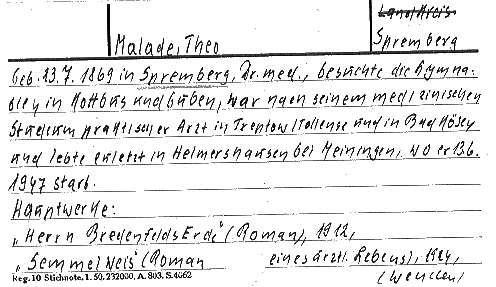 Landkreis
Malade, Theo
Spremberg
Geb. 23.7. 1869 in Spremberg, Dr. med., besuchte die Gymna-
sien in Kottbus und Guben, war nach seinem medizinischen
Studium praktischer Arzt in Treptow/Tollense und in Bad Kösen
und lebte zuletzt in Helmershausen bei Meiningen, wo er 13.6.
1947 starb.
Hauptwerke:
„Herrn Bredenfelds Erde" (Roman), 1912,
„Semmelweis" (Roman eines ärztl. Lebens), 1924,
Reg. 10 Stichnote, 1. 50. 232000, A. 803. S. 4062
(wenden)